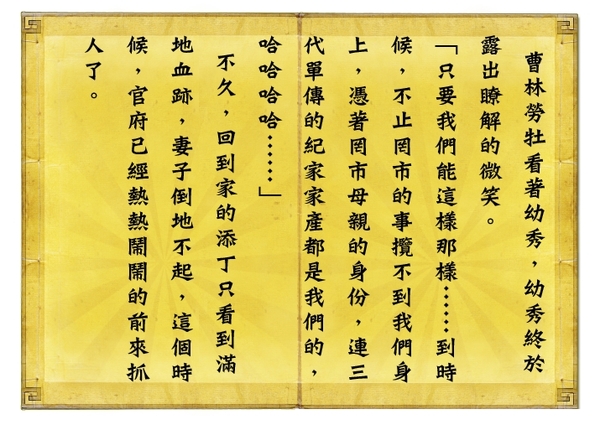 曹林勞牡看著幼秀，幼秀終於
露出瞭解的微笑。
「只要我們能這樣那樣……到時
候，不止罔市的事攬不到我們身
上，憑著罔市母親的身份，連三
代單傳的紀家家產都是我們的，
哈哈哈哈……」
不久，回到家的添丁只看到滿
地血跡，妻子倒地不起，這個時
候，官府已經熱熱鬧鬧的前來抓
人了。